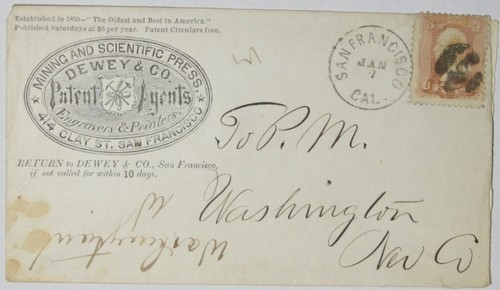 Established in 1855—"The Oldest and Best in America."
Published Saturdays at $5 per year. Patent Circulars free.
MINING AND SCIENTIFIC PRESS.
DEWEY & CO.
Patent Agents
Engravers & Printers.
414 CLAY ST. SAN FRANCISCO
RETURN to DEWEY & CO., San Francisco,
if not called for within 10 days.
SAN FRANCISCO
JAN
7
CAL.
To P. M.
Washington
Nev Co
Washington